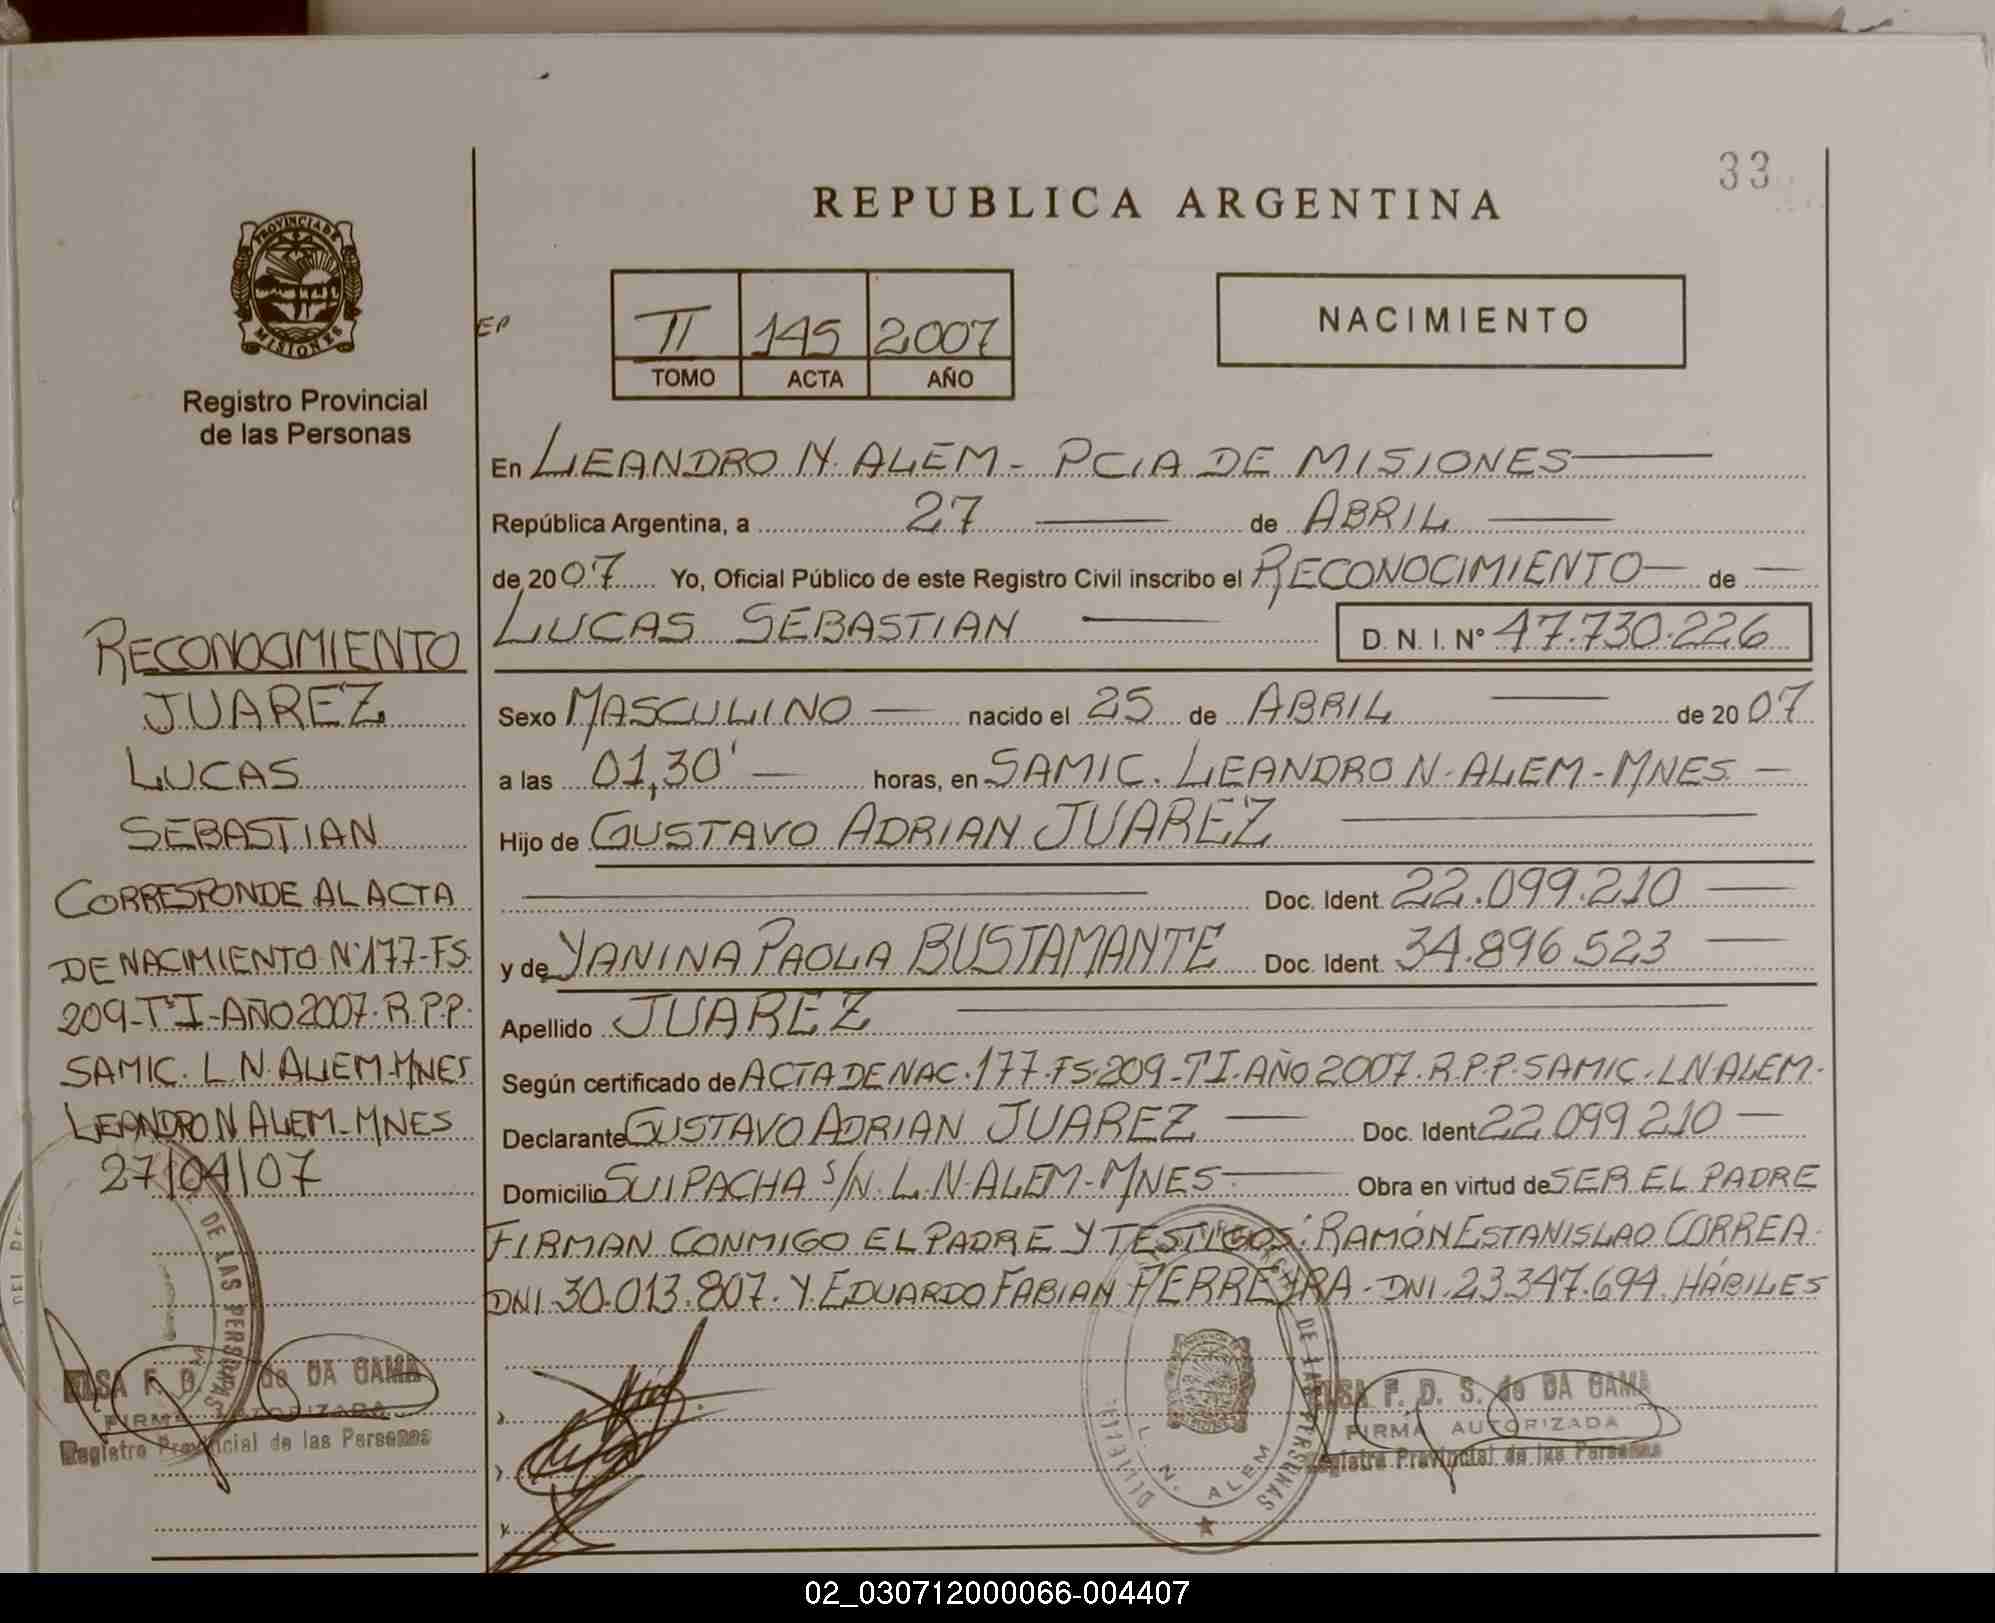 33
REPUBLICA ARGENTINA
PROVINCIA DE
MISIONES
Registro Provincial
de las Personas
EP
II 145 2007
TOMO ACTA AÑO
NACIMIENTO
En LEANDRO N. ALEM - PCIA DE MISIONES
República Argentina, a 27 de ABRIL
de 2007 Yo, Oficial Público de este Registro Civil inscribo el RECONOCIMIENTO de
LUCAS SEBASTIAN D. N. I. N° 47.730.226
Sexo MASCULINO nacido el 25 de ABRIL de 2007
a las 01,30' horas, en SAMIC. LEANDRO N. ALEM - MNES
Hijo de GUSTAVO ADRIAN JUAREZ
Doc. Ident. 22.099.210
y de YANINA PAOLA BUSTAMANTE Doc. Ident. 34.896.523
Apellido JUAREZ
Según certificado de ACTA DE NAC. 177. FS. 209 - Tº I. AÑO 2007. R.P.P. SAMIC. L N ALEM.
Declarante GUSTAVO ADRIAN JUAREZ Doc. Ident 22.099.210
Domicilio SUIPACHA S/N. L. N. ALEM - MNES. Obra en virtud de SER EL PADRE
FIRMAN CONMIGO EL PADRE Y TESTIGOS: RAMÓN ESTANISLAO CORREA.
DNI 30.013.807. Y EDUARDO FABIAN FERREYRA - DNI. 23.347.694. HÁBILES
RECONOCIMIENTO
JUAREZ
LUCAS
SEBASTIAN
CORRESPONDE AL ACTA
DE NACIMIENTO Nº 177 - FS.
209 - Tº I - AÑO 2007. R.P.P.
SAMIC. L. N. ALEM - MNES
LEANDRO N ALEM - MNES
27/04/07
DE LAS PERSONAS
ELSA F. D. de DA GAMA
FIRMA AUTORIZADA
Registro Provincial de las Personas
DE LAS PERSONAS
L. N. ALEM
ELSA F. D. S. de DA GAMA
FIRMA AUTORIZADA
Registro Provincial de las Personas
02_030712000066-004407